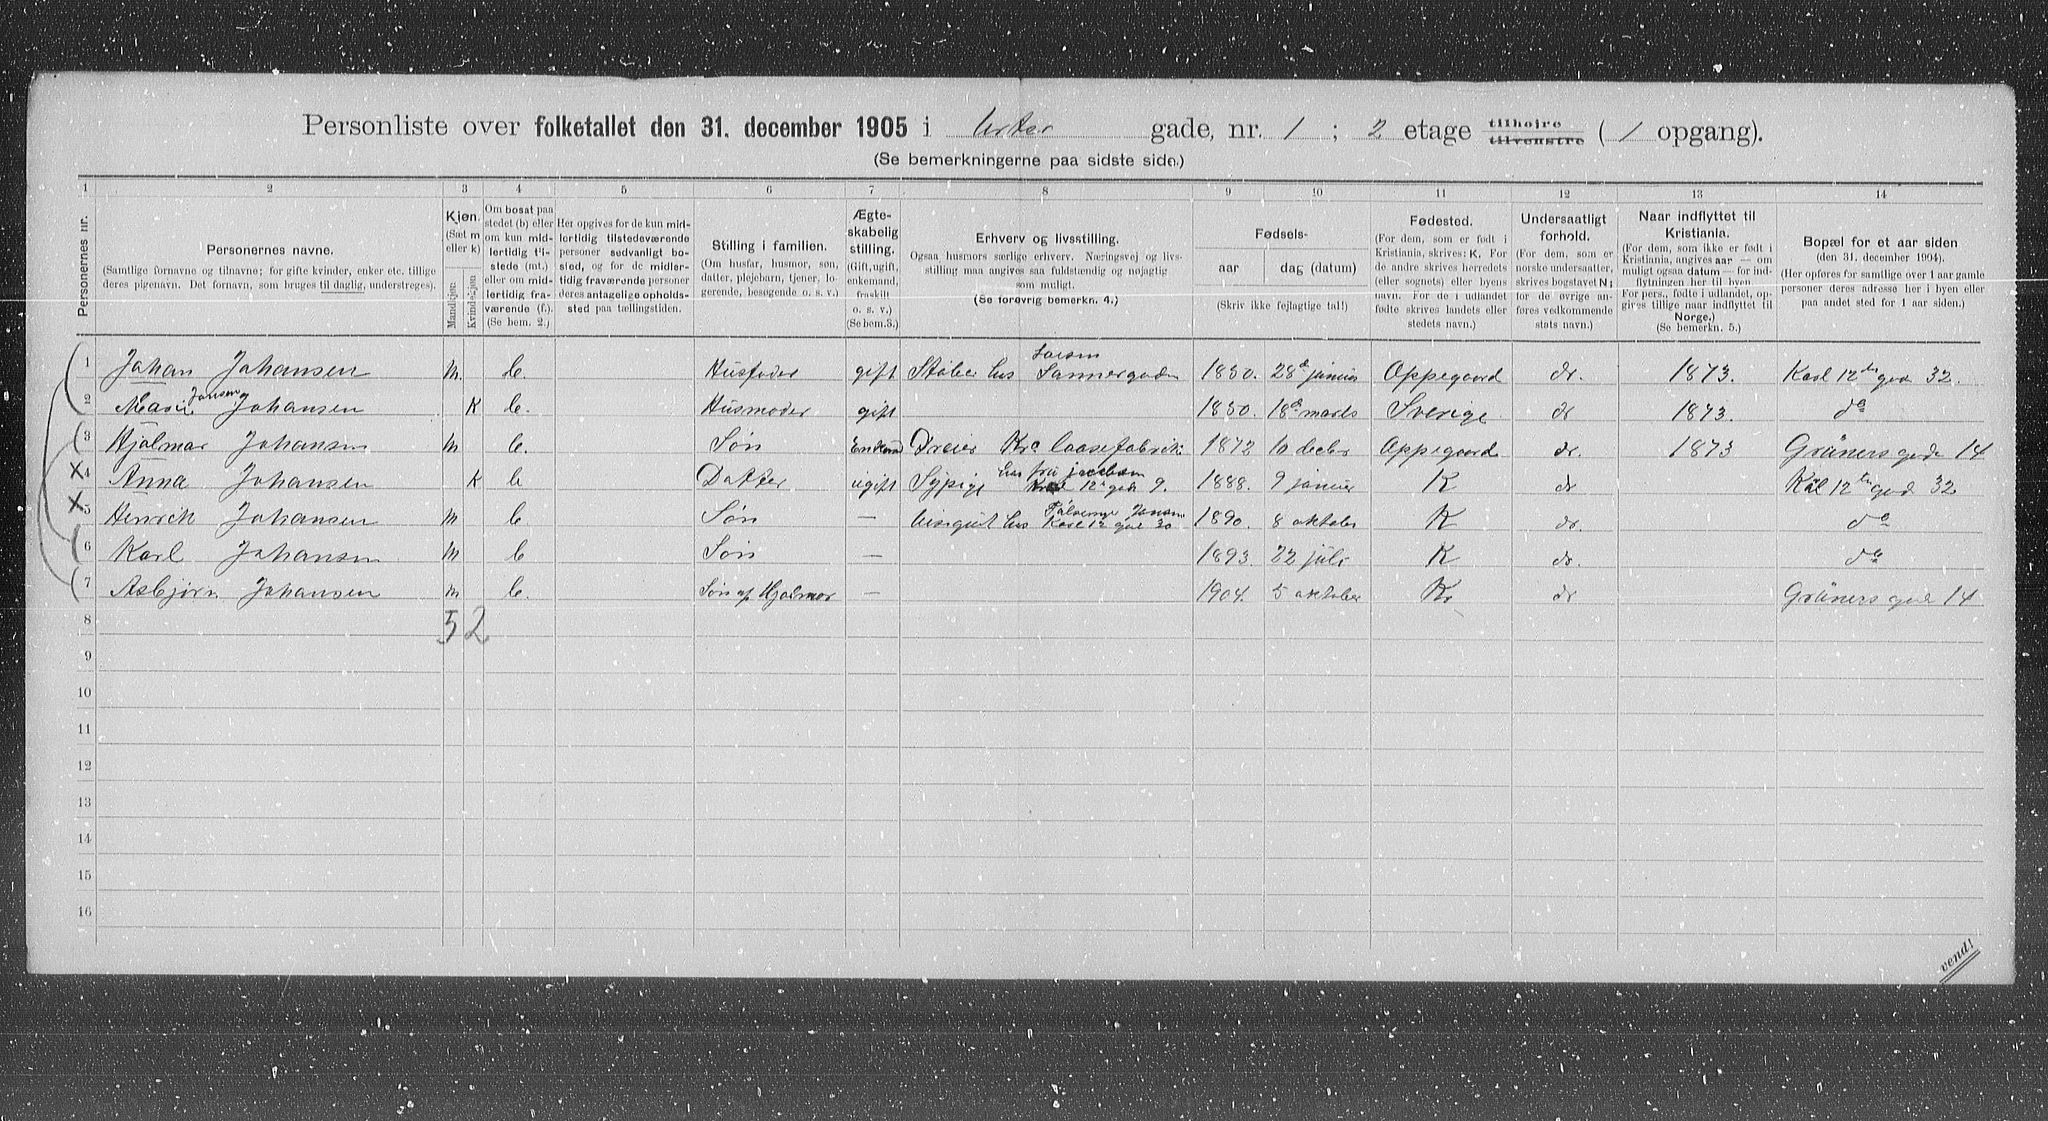 Personliste over folketallet den 31. december 1905 i Urter gade, nr. 1 ; 2 etage tilhøjre tilvenstre ( 1 opgang).
(Se bemerkningerne paa sidste side.)
1 2 3 4 5 6 7 8 9 10 11 12 13 14
Personernes nr.
Personernes navne.
(Samtlige fornavne og tilnavne; for gifte kvinder, enker etc. tillige
deres pigenavn. Det fornavn, som bruges til daglig, understreges).
Kjøn.
(Sæt m
eller k)
Mandkjøn.
Kvindekjøn.
Om bosat paa
stedet (b) eller
om kun mid-
lertidig til-
stede (mt.)
eller om mid-
lertidig fra-
værende (f.).
(Se bem. 2.)
Her opgives for de kun mid-
lertidig tilstedeværende
personer sedvanligt bo-
sted, og for de midler-
tidig fraværende personer
deres antagelige opholds-
sted paa tællingstiden.
Stilling i familien.
(Om husfar, husmor, søn,
datter, plejebarn, tjener, lo-
gerende, besøgende o. s. v.)
Ægte-
skabelig
stilling.
(Gift, ugift,
enkemand,
fraskilt
o. s. v.)
(Se bem.3.)
Erhverv og livsstilling.
Ogsaa husmors særlige erhverv. Næringsvej og livs-
stilling maa angives saa fuldstændig og nøjagtig
som muligt.
(Se forøvrig bemerkn. 4.)
Fødsels-
aar
dag (datum)
(Skriv ikke fejlagtige tal!)
Fødested.
(For dem, som er født i
Kristiania, skrives: K. For
de andre skrives herredets
(eller sognets) eller byens
navn. For de i udlandet
fødte skrives landets eller
stedets navn.)
Undersaatligt
forhold.
(For dem, som er
norske undersaatter,
skrives bogstavet N;
for de øvrige an-
føres vedkommende
stats navn.)
Naar indflyttet til
Kristiania.
(For dem, som ikke er født i
Kristiania, angives aar — om
muligt ogsaa datum — for ind-
flytningen her til byen.
For pers., fødte i udlandet, op-
gives tillige naar indflyttet til
Norge.)
(Se bemerkn. 5.)
Bopæl for et aar siden
(den 31. december 1904).
(Her opføres for samtlige over 1 aar gamle
personer deres adresse her i byen eller
paa andet sted for 1 aar siden.)
1 Johan Johansen M. b. Husfader gift Støber hos Sannergaden 1850. 28d januar Oppegaard 1873. Karl 12tes gad 32.
2 Marie Jansen Johansen K b. Husmoder gift 1850. 18d marts Sverige 1873 do
3 Hjalmar Johansen M b. Søn Enkem Dreier Kra laasefabrik 1872 10 decbr Oppegaard 1873 Grüners gade 14
4 Anna Johansen K b Datter ugift Sypige hos fru Jacobsen Karl 12 gade 9. 1888. 9 januar K Karl 12te gad 32
5 Henrik Johansen M b Søn — visergut hos Jansen Karl 12 gad 30 1890. 8 oktober K do
6 Karl Johansen M b Søn — 1893. 22 juli K do
7 Asbjørn Johansen M b. Søn af Hjalmar — 1904. 5 oktober Kr Grüners gade 14
8 52
9
10
11
12
13
14
15
16
vend!